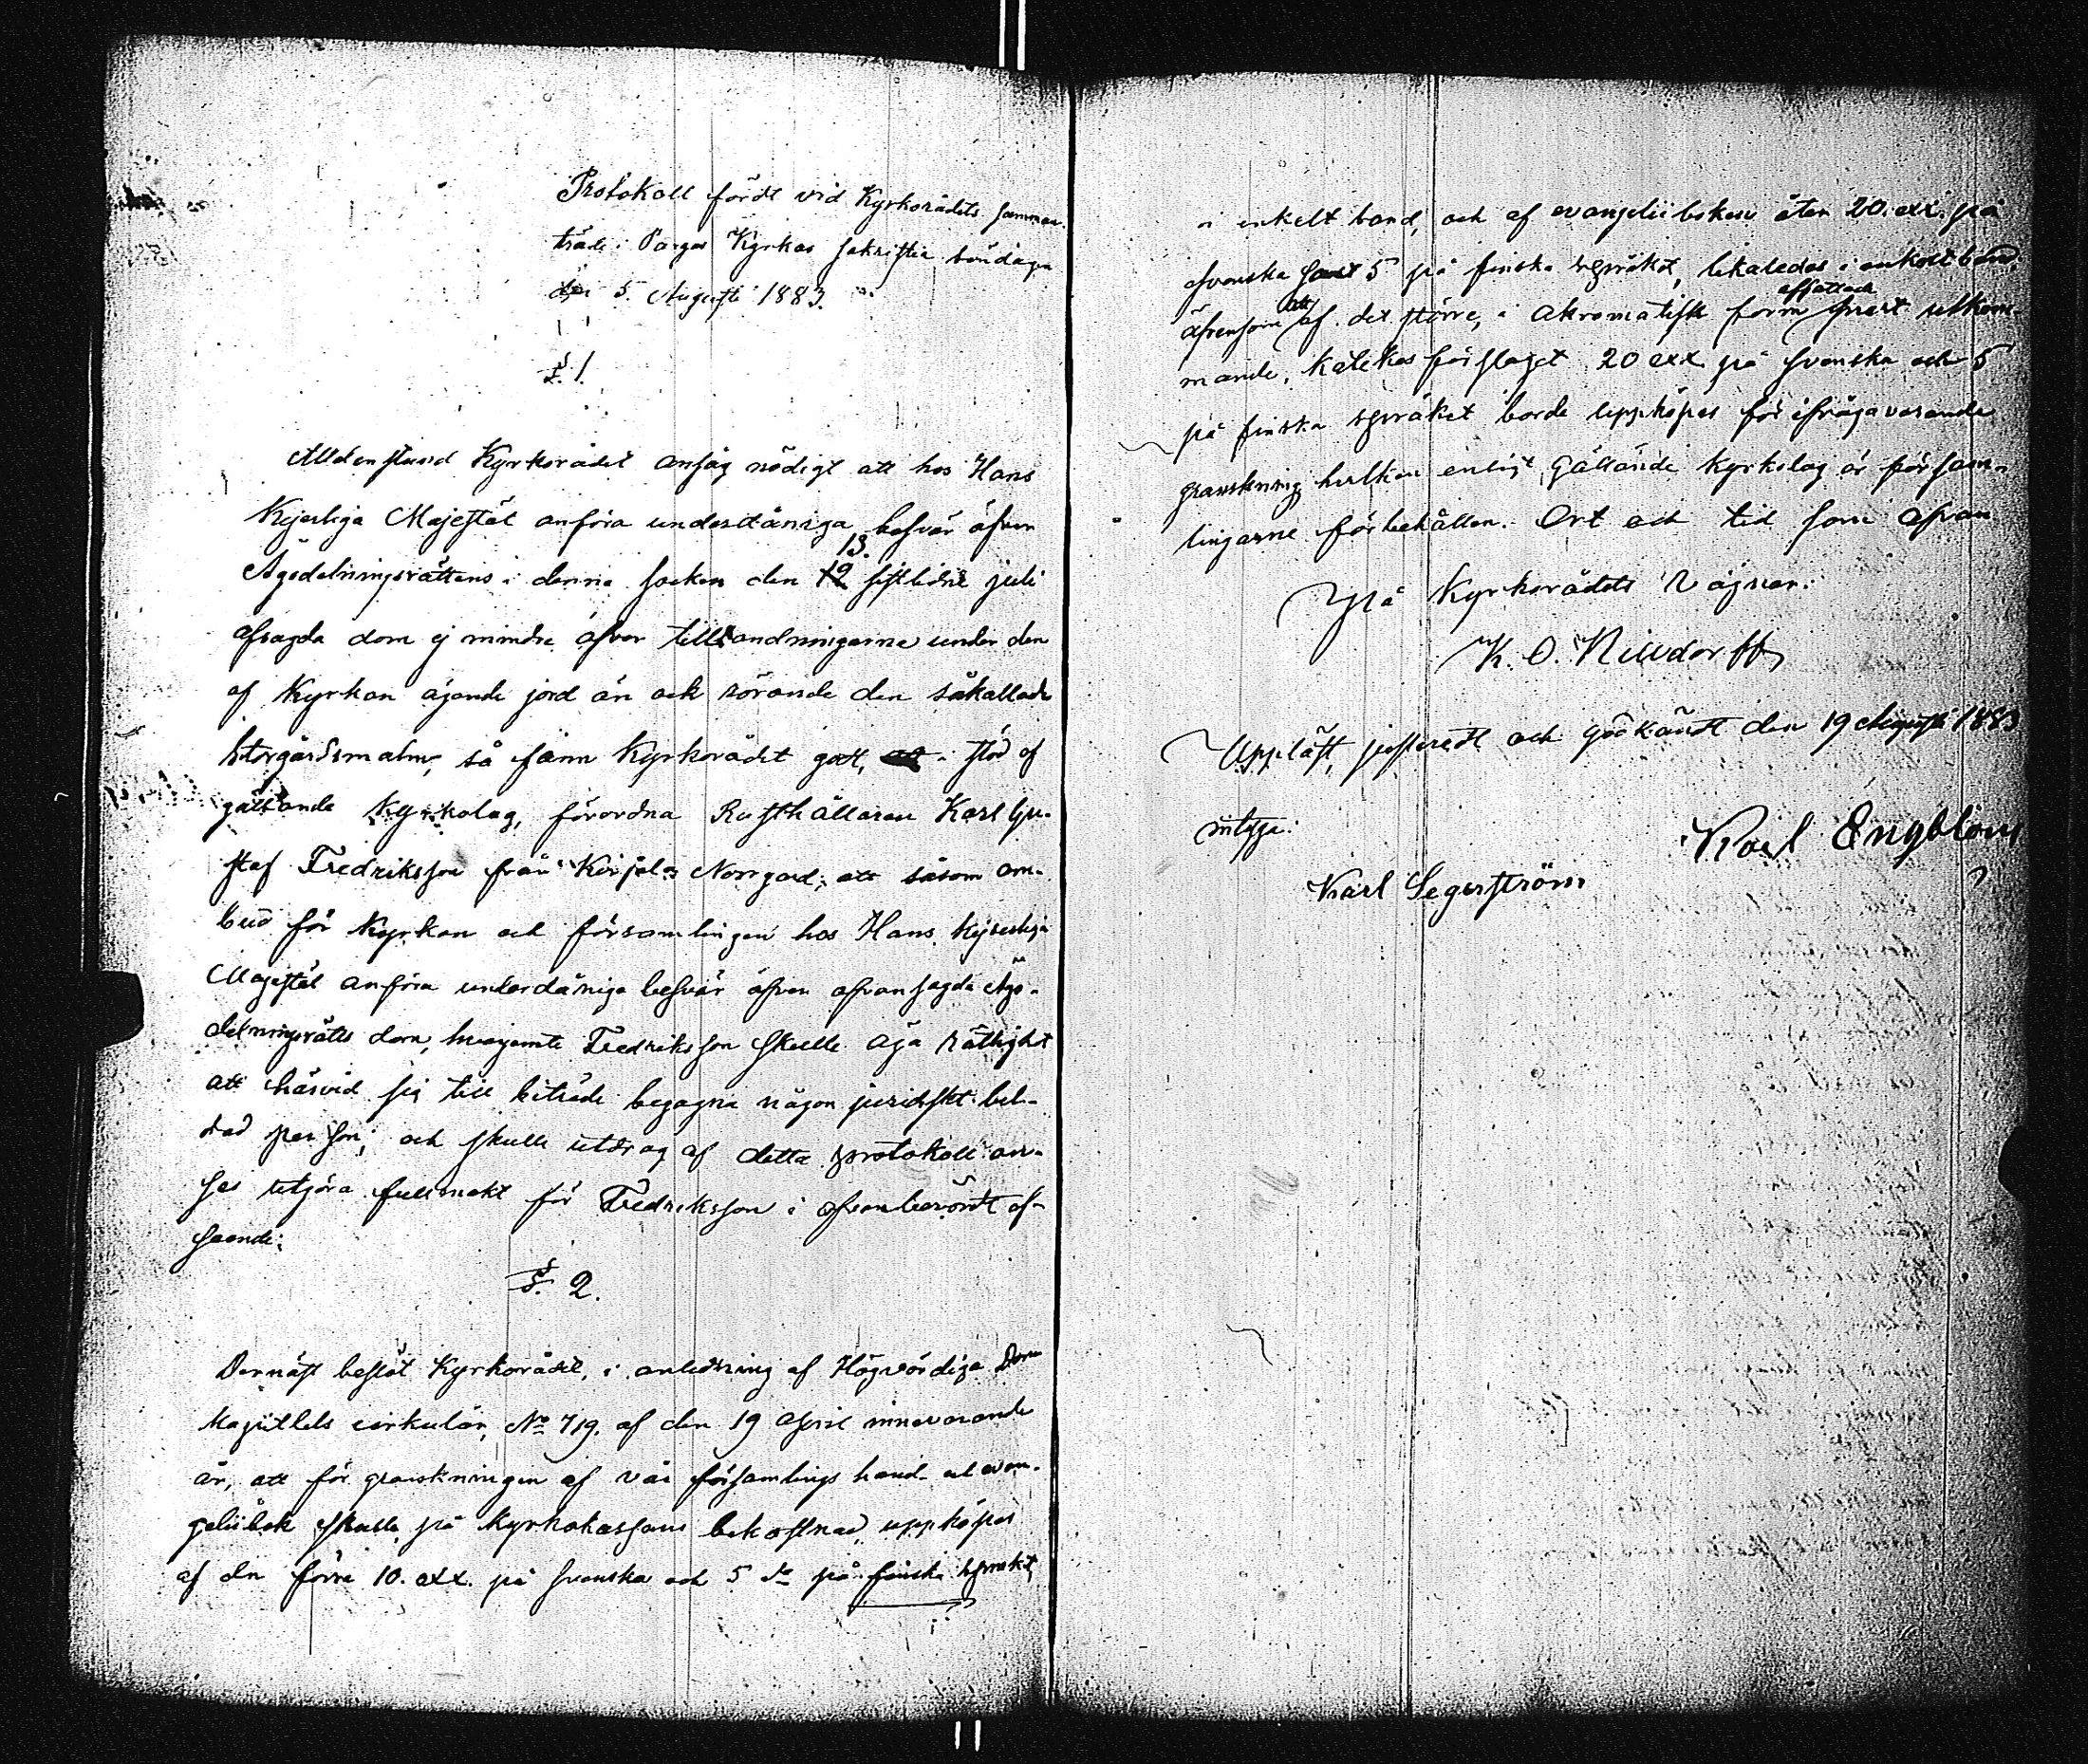 Protokoll fördt vid Kyrkorådets samman
träde i Pargas Kyrkas sakristia söndagen
den 5. Augusti 1883.
§. 1.
Alldenstund Kyrkorådet ansåg nödigt att hos Hans
Kejserliga Majestät anföra underdåniga besvär öfver
13.
Ägodelningsrättens i denna socken den 12 sistlidne juli
afsagda dom ej mindre öfver tilllandningarne under den
af Kyrkan ägande jord än ock rörande den såkallade
Storgårdsmalm, så fann Kyrkorådet godt, i stöd af
gällande Kyrkolag, förordna Rusthållaren Karl Gu-
staf Fredriksson från Kirjala Norrgård, att såsom om-
bud för Kyrkan och församlingen hos Hans Kejserliga
Majestät anföra underdåniga besvär öfver ofvansagda Ägo-
delningsrätts dom, hvarjemte Fredriksson skulle äga rättighet
att härvid sig till biträde begagna någon juridiskt bil-
dad person; och skulle utdrag af detta protokoll an-
ses utgöra fullmakt för Fredriksson i ofvanberördt af-
seende.
§. 2.
Dernäst beslöt Kyrkorådet, i anledning af Högvördiga Dom
Kapitlets cirkulär, No 719. af den 19 April innevarande
år, att för granskningen af vår församlings hand- och evan-
geliibok skulle på Kyrkokassans bekostnad uppköpas
af den förra 10. exx. på svenska och 5 do på finska språket,
i enkelt band, och af evangeliiboken åter 20. exx. på
svenska samt 5 på finska språket, likaledes i enkelt band,
att affattade
äfvensom af det större, i akromatisk form snart utkom-
mande, Katekesförslaget 20 exx på svenska och 5
på finska språket borde uppköpas för ifrågavarande
granskning hvilken enligt gällande Kyrkolag är försam-
lingarne förbehållen. Ort och tid som ofvan
På Kyrkorådets vägnar:
K. O.
Uppläst, justeradt och godkändt den 19 Augusti 1883
intyga:
Karl Engblom
Karl Segerström